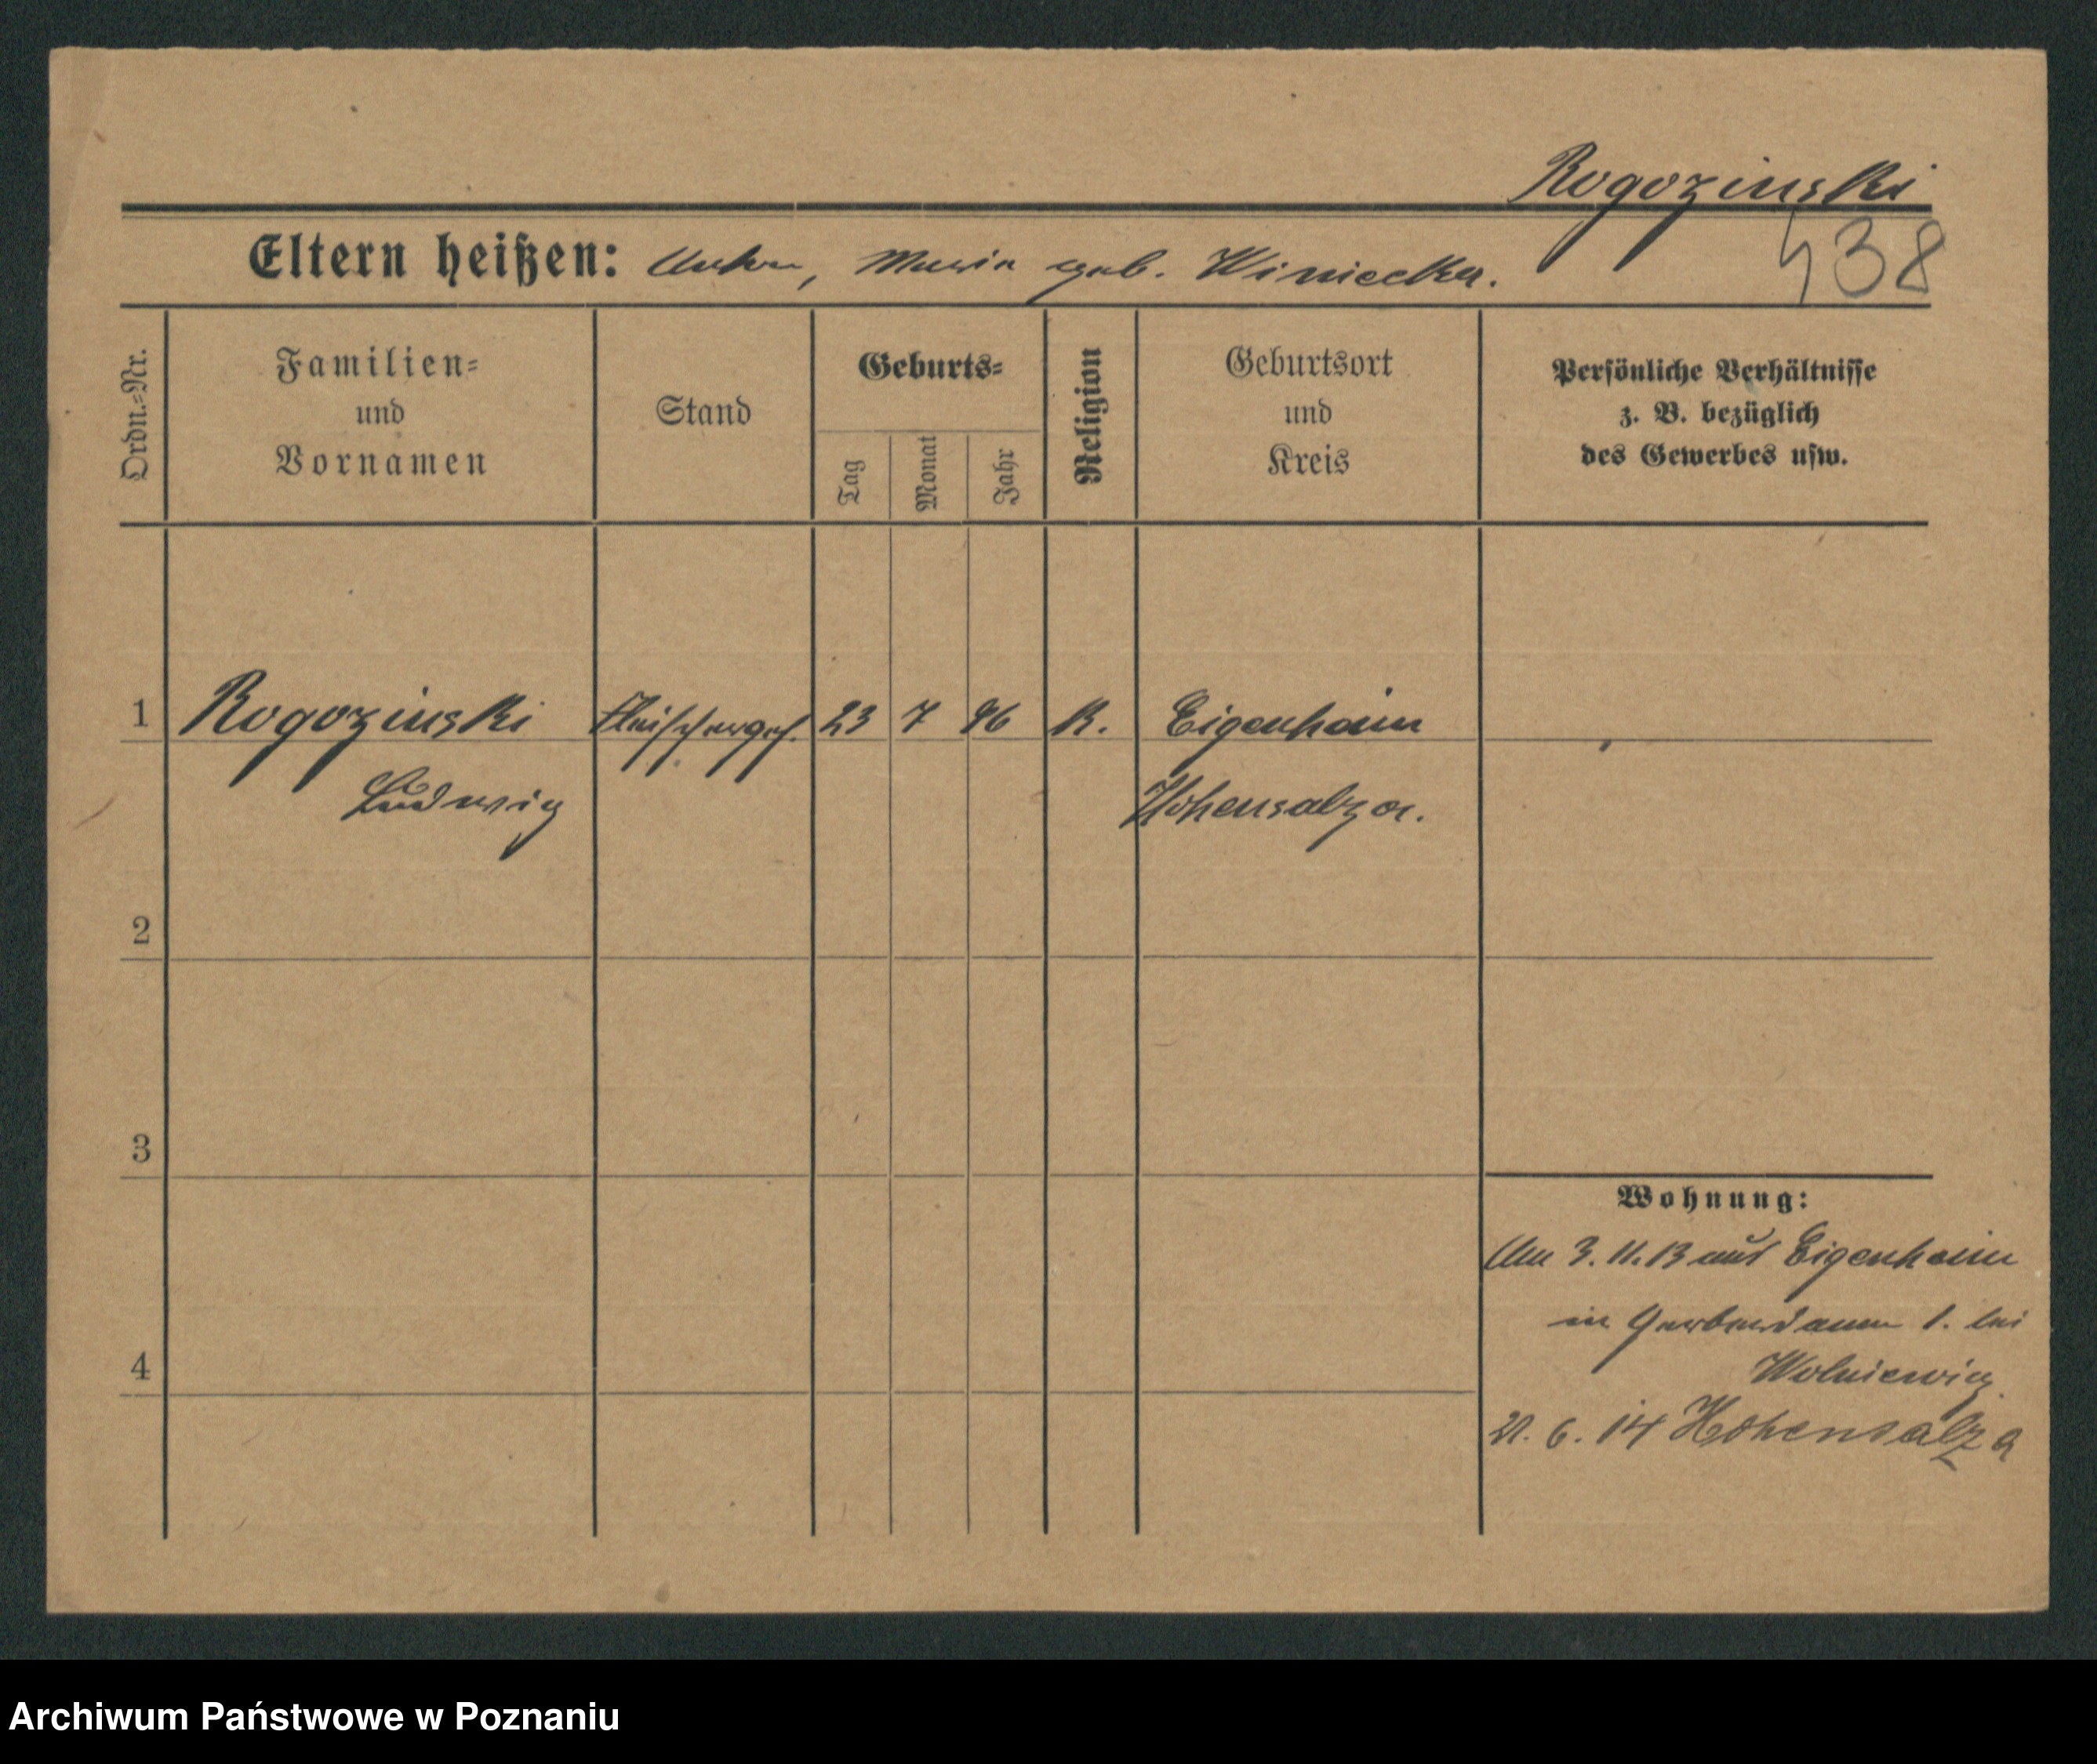 Rogozinski
438
Eltern heißen: Anton, Maria geb. Winiecka.
Ordn.-Nr.
Familien-
und
Vornamen
Stand
Geburts-
Tag
Monat
Jahr
Religion
Geburtsort
und
Kreis
Persönliche Verhältnisse
z. B. bezüglich
des Gewerbes usw.
1 Rogozinski Fleischerges. 23 7 96 K. Eigenheim
Ludwig Hohensalza.
2
3
Wohnung:
Am 3. 11. 13 aus Eigenheim
in Gerberdamm 1. bei
4
Wolniewicz
21. 6. 14 Hohensalza
Archiwum Państwowe w Poznaniu